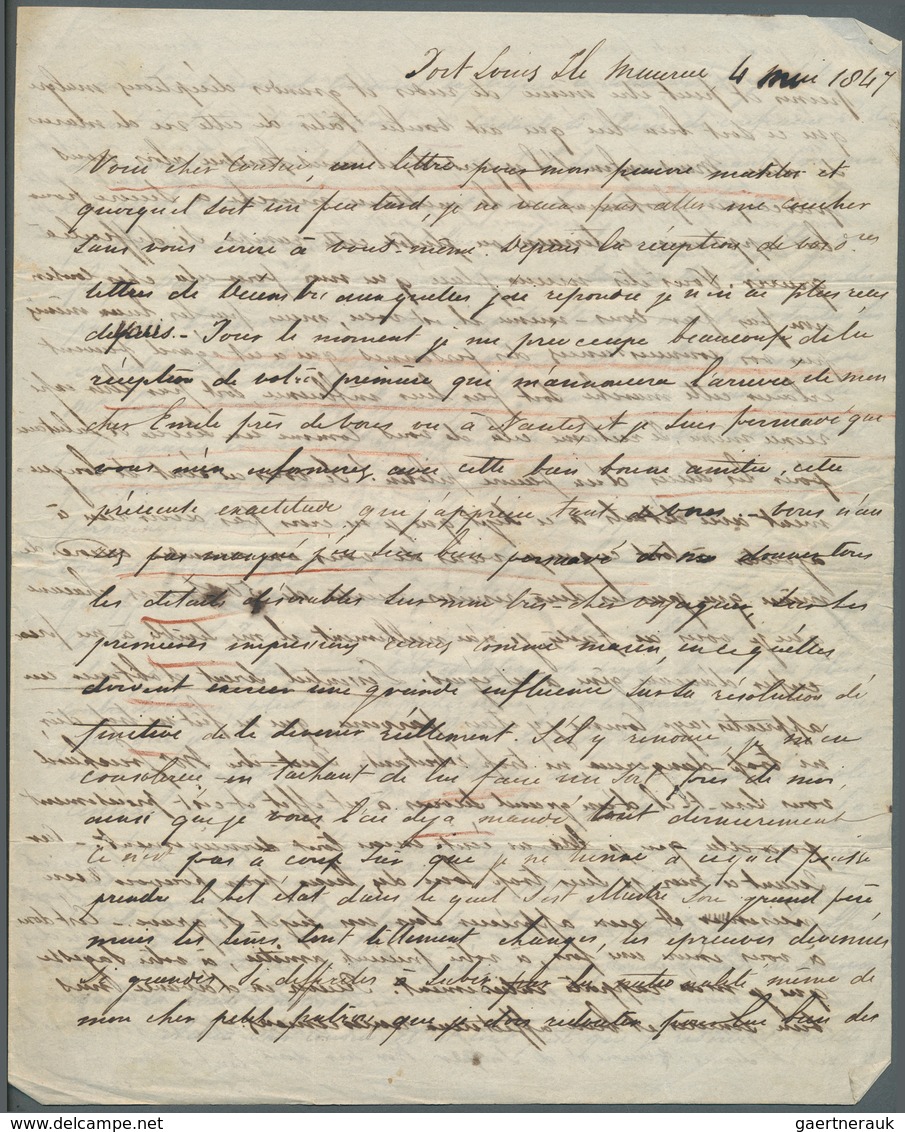 Port Louis Ile Maurice 4 mai 1847
Voici cher Cousin, une lettre pour mon pauvre matelot et
quoiqu'il soit un peu tard, je ne veux pas aller me coucher
sans vous écrire à vous-même. Depuis la réception de vos dres
lettres de Décembre auxquelles j'ai répondu je n'en ai plus reçu
depuis. - Pour le moment je me préoccupe beaucoup de la
réception de votre première qui m'annoncera l'arrivée de mon
cher Emile près de vous ou à Nantes et je suis persuadé que
vous m'en informerez avec cette bien bonne amitié, cette
précieuse exactitude que j'apprécie tant de vous. vous n'au
rez pas manqué j'en suis bien persuadé de me donner tous
les détails désirables sur mon très-cher voyageur, sur ses
premières impressions comme marin, en ce qu'elles
doivent exercer une grande influence sur sa résolution dé
finitive de le devenir réellement. S'il y renonce, je m'en
consolerai en tachant de lui faire un sort près de moi
ainsi que je vous l'ai déjà mandé tout dernièrement
ce n'est pas à coup sûr que je ne tienne à ce qu'il puisse
prendre le bel état dans lequel s'est illustré son grand père
mais les tems sont tellement changés, les épreuves devenues
si grandes si difficiles à subir par la nationalité même de
mon cher petit que je dois redouter pour lui bien des
gaertnerauk